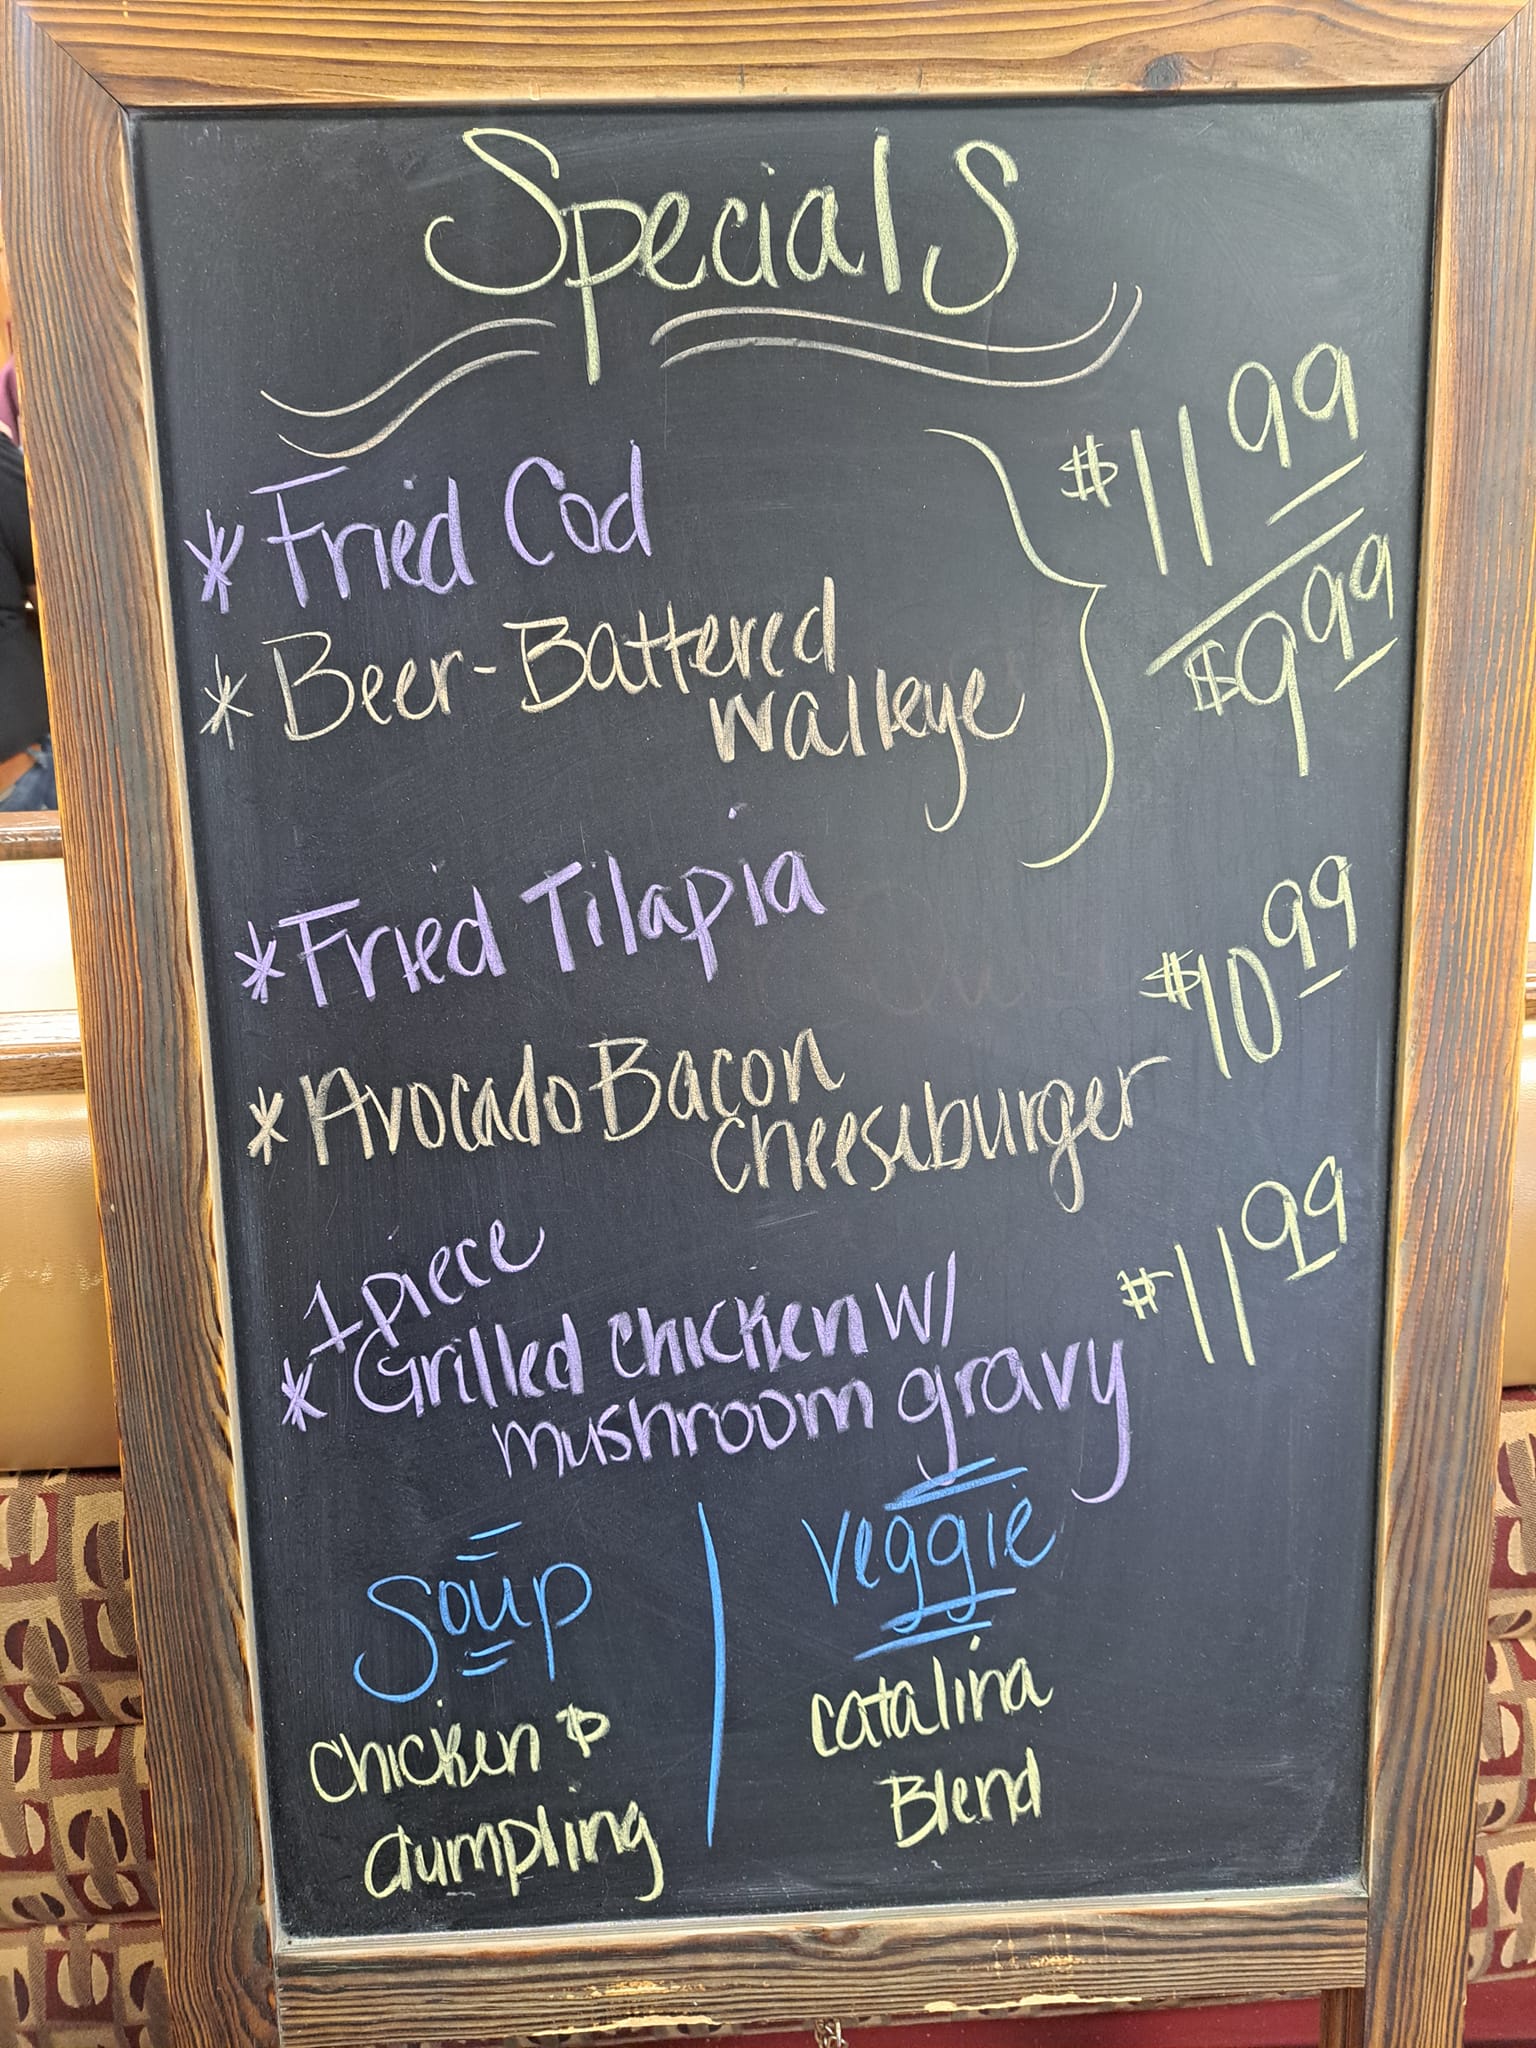 Specials
* Fried Cod
$11.99
* Beer-Battered
Walleye
$9.99
* Fried Tilapia
* Avocado Bacon
Cheeseburger
$10.99
1 piece
* Grilled Chicken w/
mushroom gravy
$11.99
Soup
Chicken &
dumpling
Veggie
Catalina
Blend